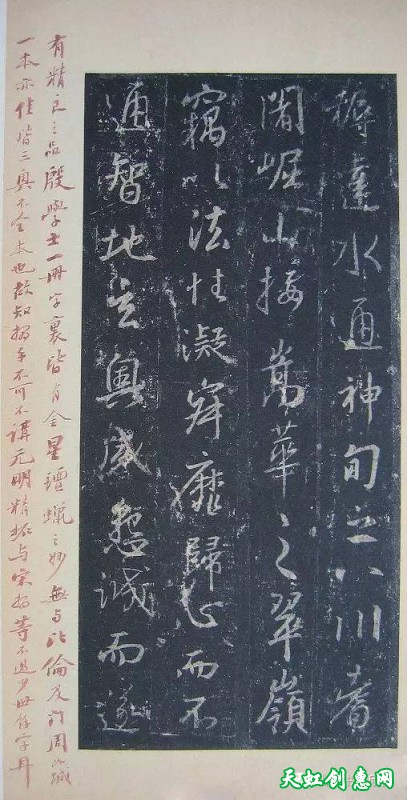 耨達水通神甸之八川耆
闍崛山接嵩華之翠嶺
竊以法性凝寂靡歸心而不
通智地玄奧感懇誠而遂
有精已之品殷學士一冊字裏皆有金星氊蠟之妙無與比倫及許周
一本亦佳皆三奧不全本也故知搨手不可不講元明精拓与宋搨等不過少字耳
天虹创惠网